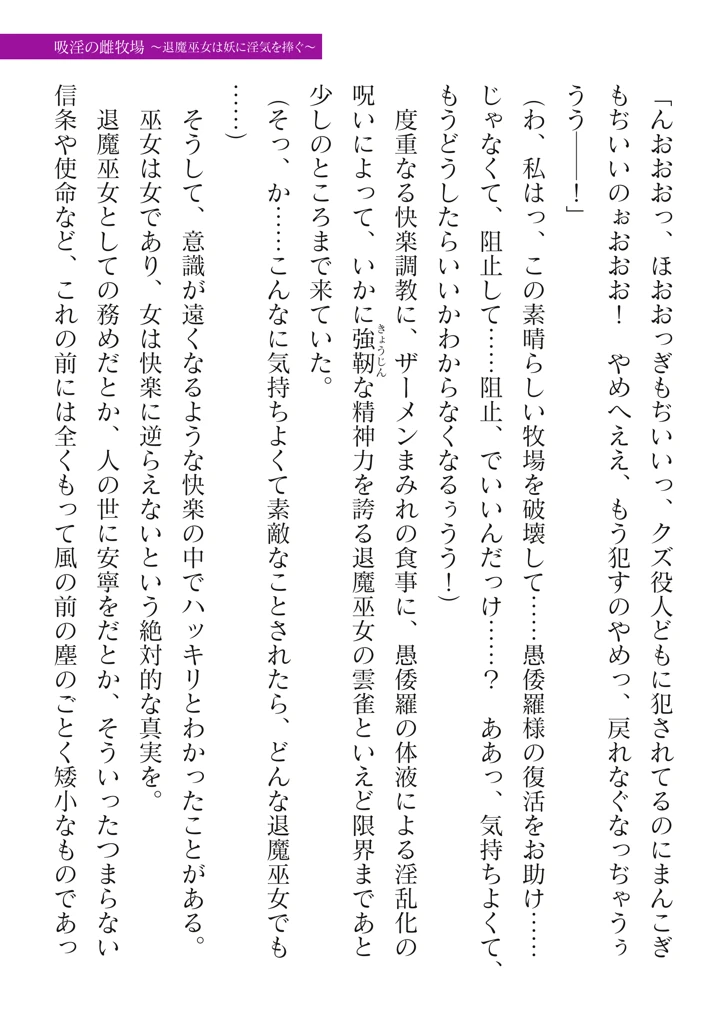 吸淫の雌牧場 ～退魔巫女は妖に淫気を捧ぐ～
「んおおおっ、ほおおっぎもぢいいっ、クズ役人どもに犯されてるのにまんこぎ
もぢいいのぉおおお！　やめへええ、もう犯すのやめっ、戻れなぐなっぢゃうぅ
うう――！」
（わ、私はっ、この素晴らしい牧場を破壊して……愚倭羅様の復活をお助け……
じゃなくて、阻止して……阻止、でいいんだっけ……？　ああっ、気持ちよくて、
もうどうしたらいいかわからなくなるぅうう！）
　度重なる快楽調教に、ザーメンまみれの食事に、愚倭羅の体液による淫乱化の
呪いによって、いかに強靭な精神力を誇る退魔巫女の雲雀といえど限界まであと
きょうじん
少しのところまで来ていた。
（そっ、か……こんなに気持ちよくて素敵なことされたら、どんな退魔巫女でも
……）
　そうして、意識が遠くなるような快楽の中でハッキリとわかったことがある。
　巫女は女であり、女は快楽に逆らえないという絶対的な真実を。
　退魔巫女としての務めだとか、人の世に安寧をだとか、そういったつまらない
信条や使命など、これの前には全くもって風の前の塵のごとく矮小なものであっ